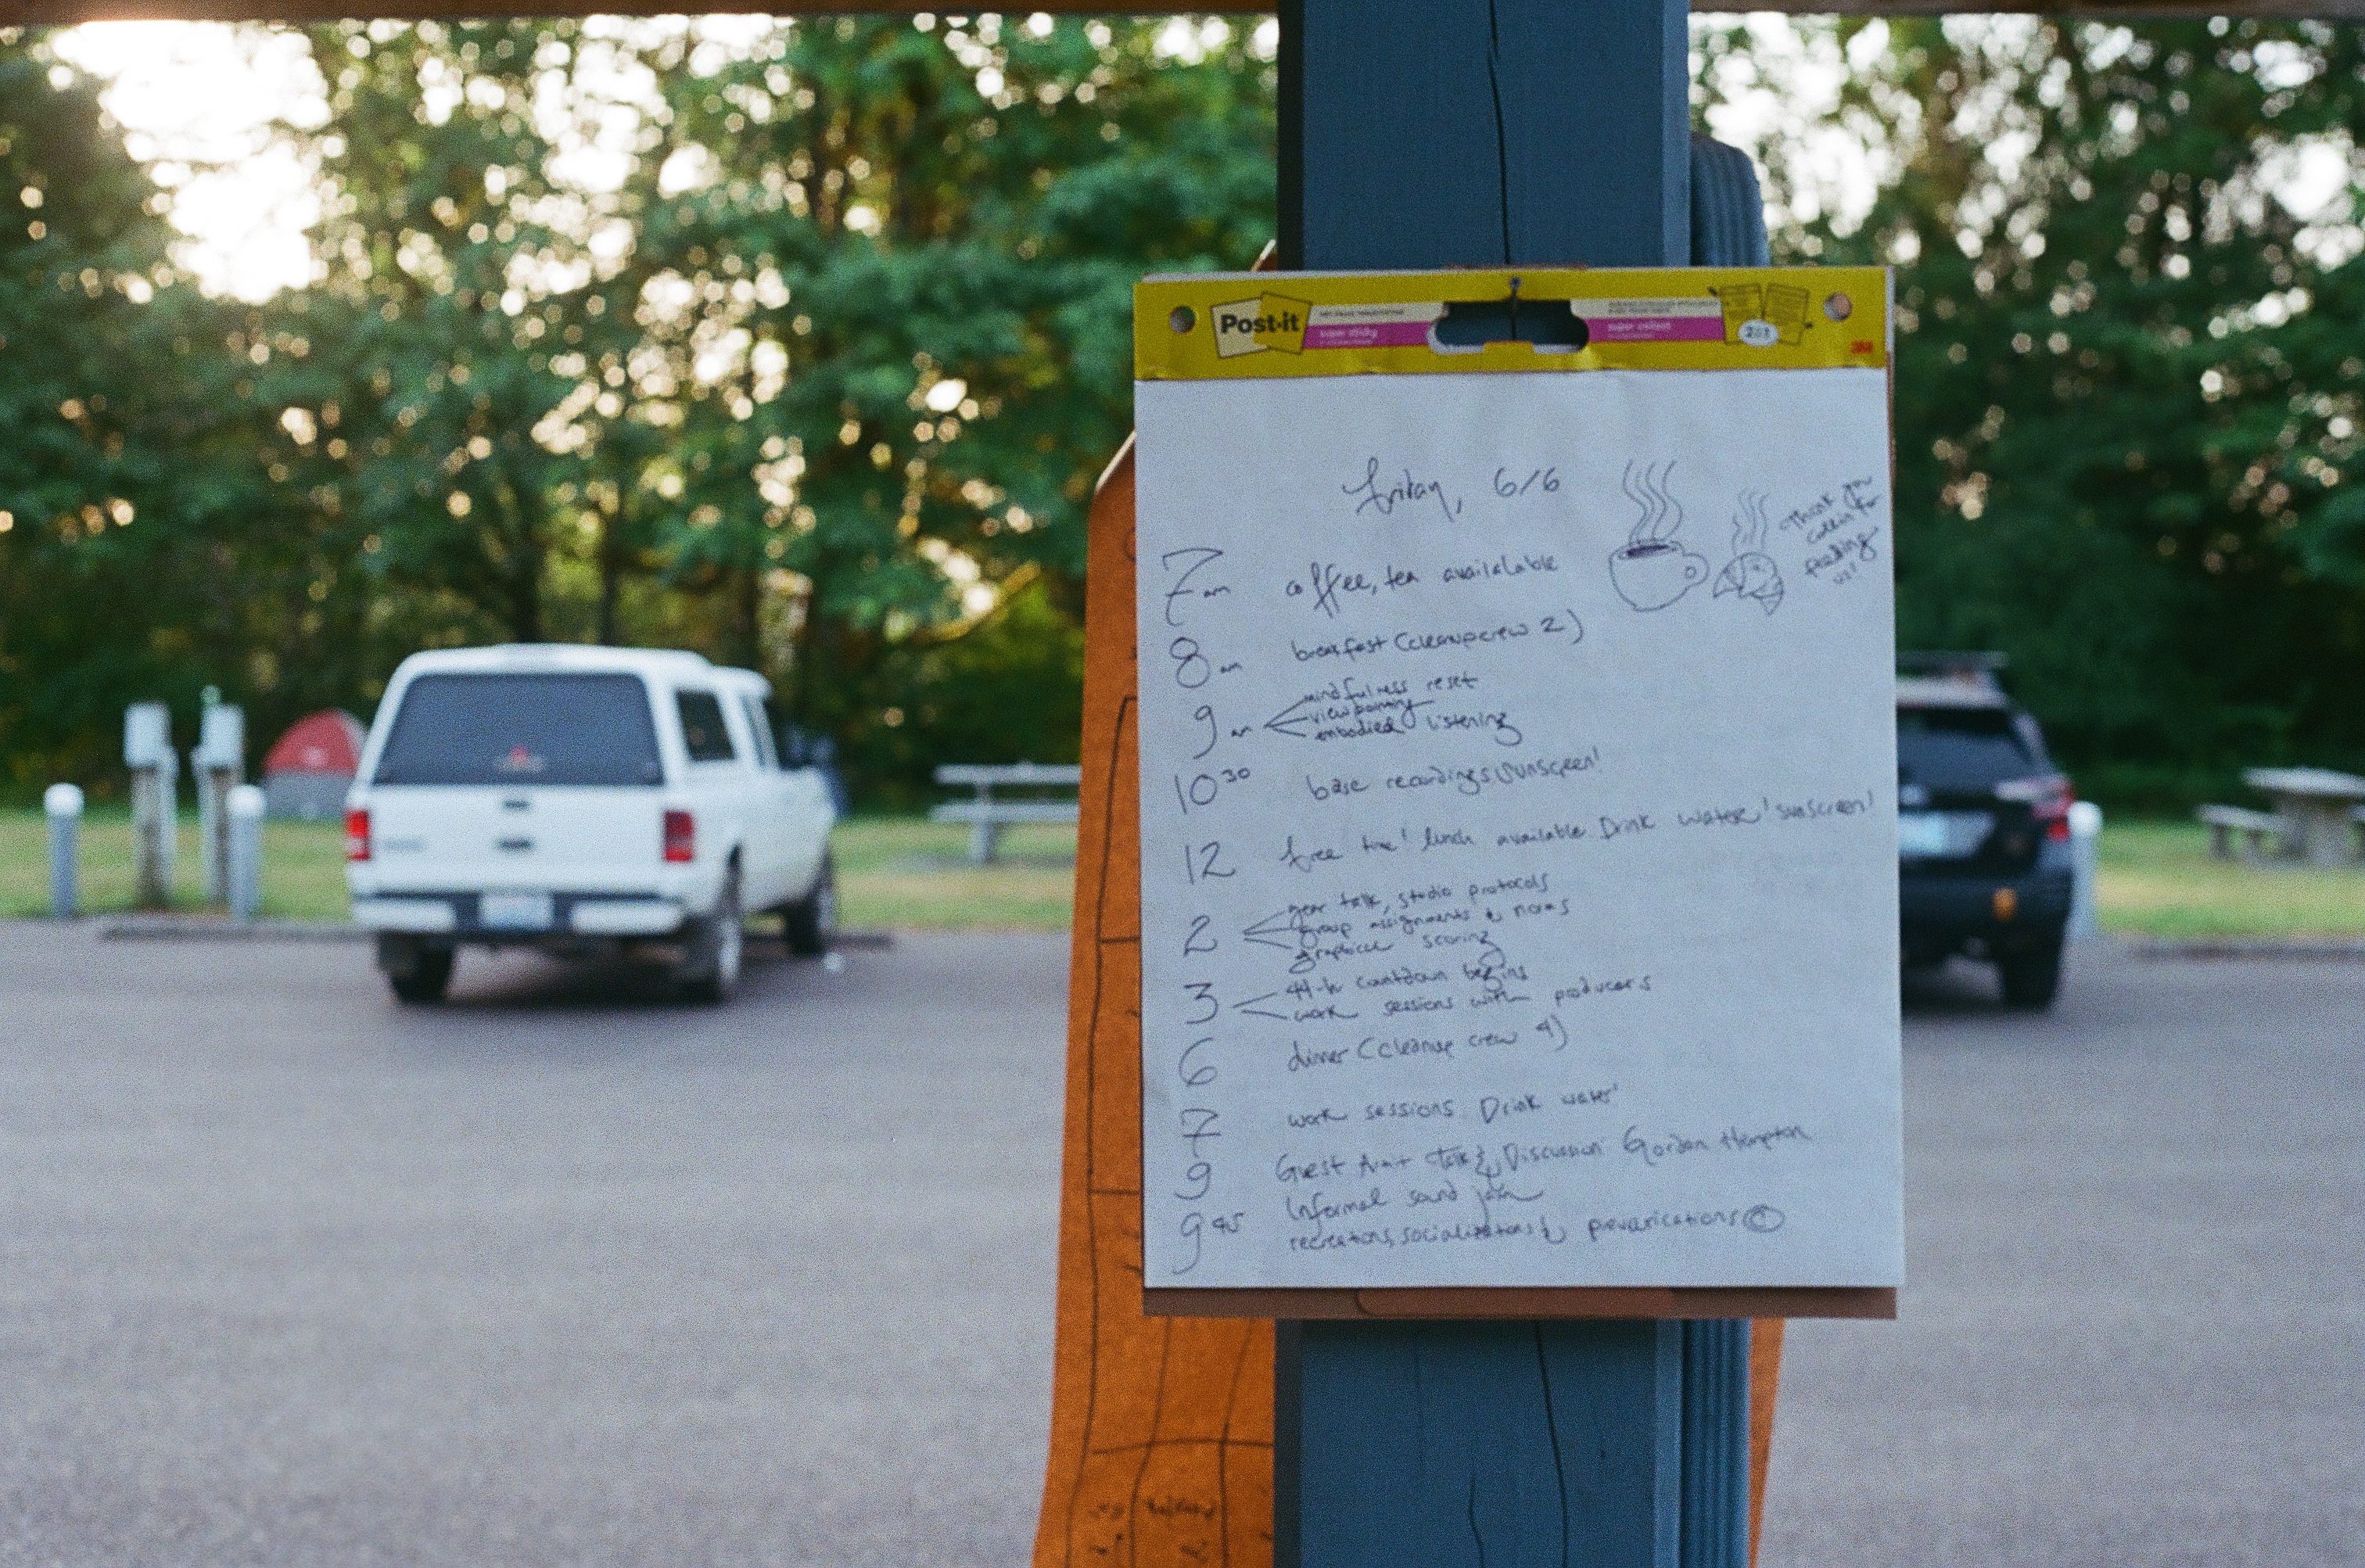 Post-it
super sticky
3M
Friday, 6/6
Thank you
for
feeding
us!
7am coffee, tea available
8am breakfast (cleanup crew 2)
9am mindfulness reset
viewpointing
embodied listening
10 30 base recordings sunscreen!
12 free time! lunch available Drink water! sunscreen!
2 gear talk, studio protocols
group assignments & norms
graphical scoring
3 44-hr countdown begins
work sessions with producers
6 dinner (cleanup crew 4)
7 work sessions. Drink water!
9 Guest Artist Talk & Discussion: Gordon Hempton
9 45 Informal sound jam
recreations, socializations & prevarications